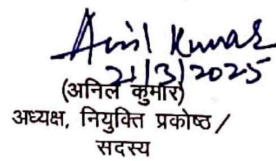 Anil Kumar
21/3/2025
(अनिल कुमार)
अध्यक्ष, नियुक्ति प्रकोष्ठ /
सदस्य